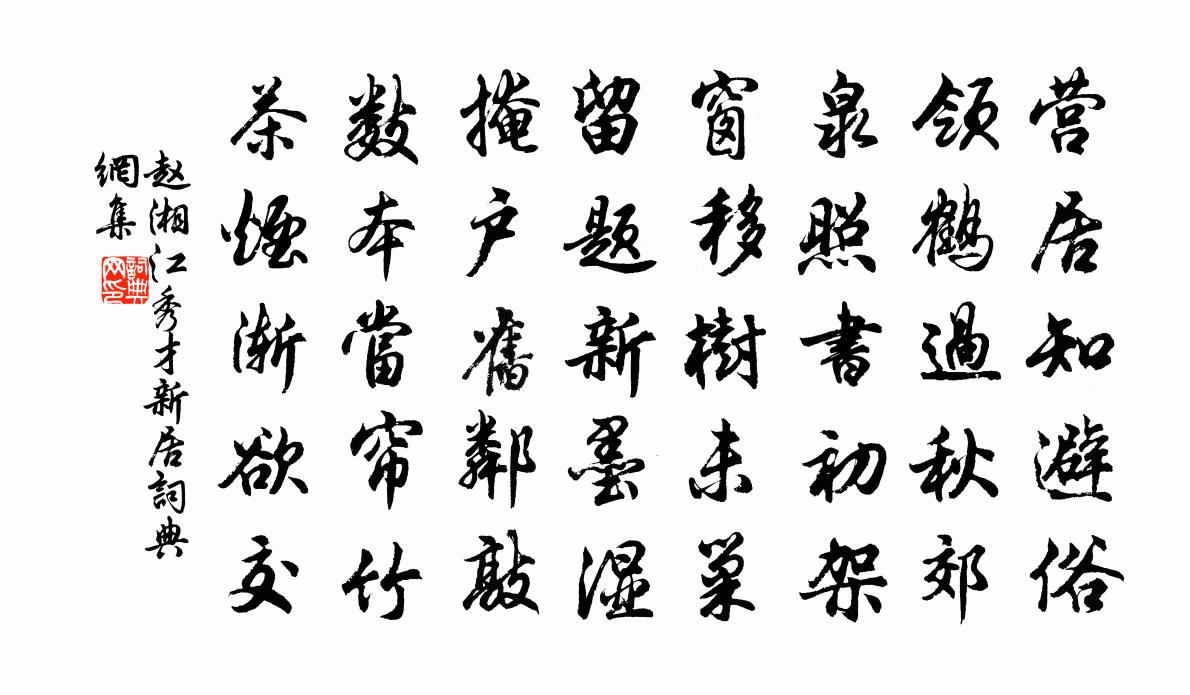 营居知避俗
领鹤過秋郊
泉照書初架
窗移樹未巢
留题新墨湿
掩户舊鄰敲
数本當帘竹
茶煙渐欲交
赵湘江秀才新居詞典
網集
詞典
网印